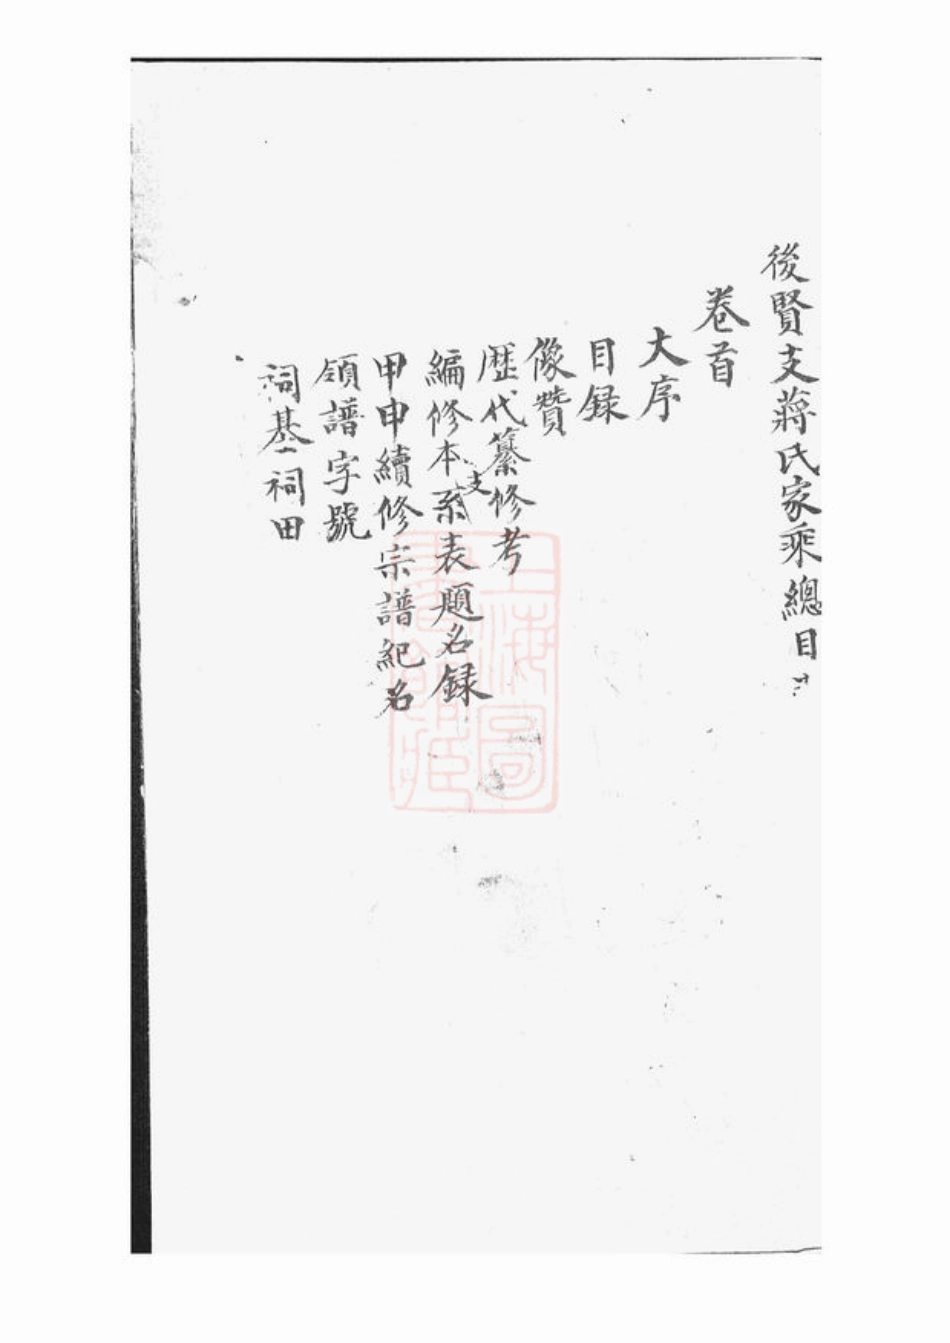 後賢支蔣氏家乘總目
卷首
大序
目録
像贊
歴代纂修考
編修本支系表題名録
甲申續修宗譜紀名
領譜字號
祠基祠田
上海圖書館藏